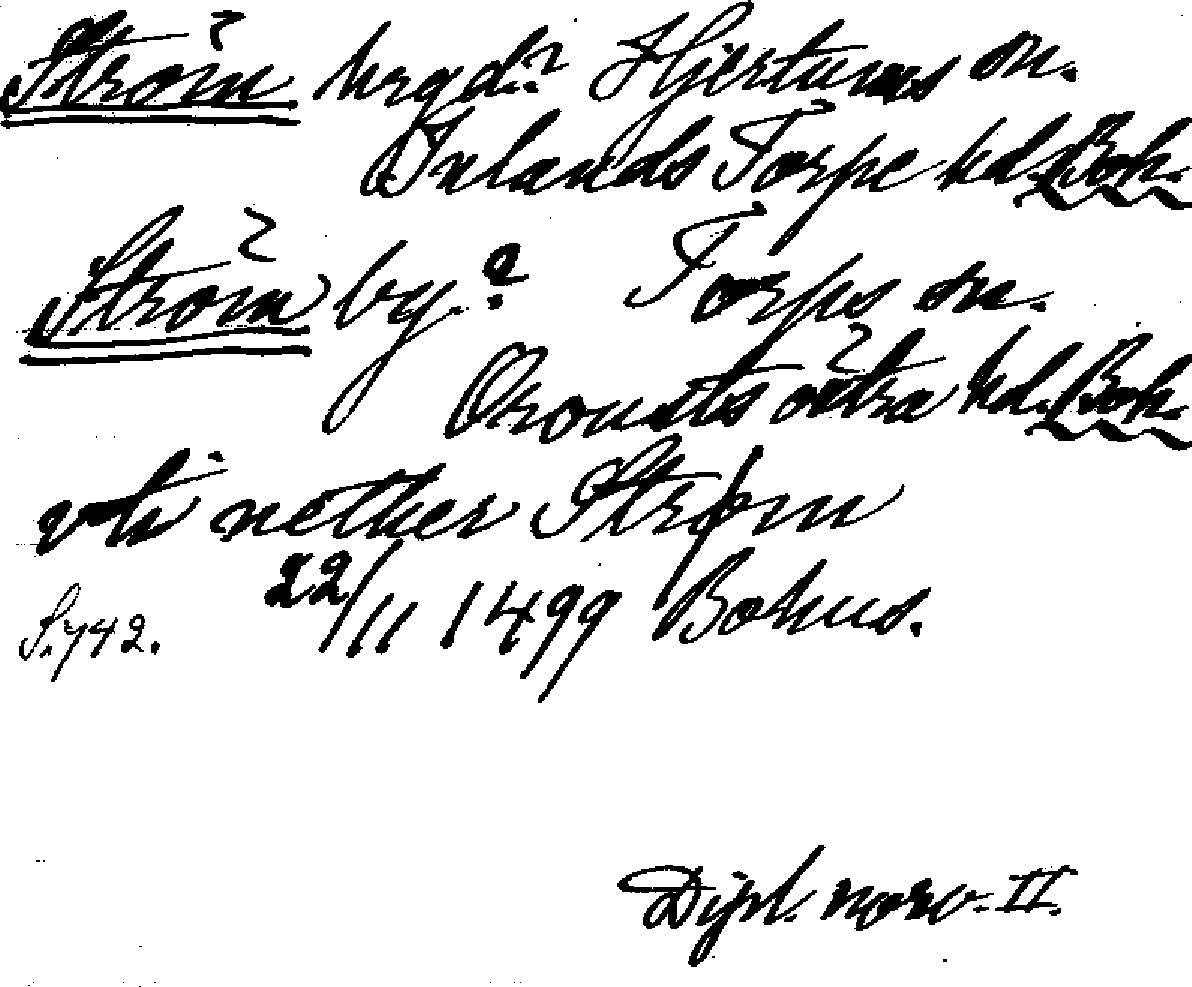 Ström hrgd.? Hjertums sn.
Inlands Torpe hd. Boh.
Ström by.? Torps sn.
Orousts östra hd. Boh.
vti nether Strøm
S. 742. 22/11 1499 Bohus.
Dipl. norv. II.